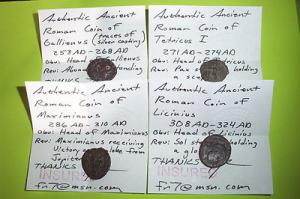 Authentic Ancient
Roman Coin of
Gallienus (traces of
silver coating)
253 AD - 268 AD
Obv: Head of Gallienus
Rev:
Authentic Ancient
Roman Coin of
Tetricus I
271 AD - 274 AD
Obv: Head of Tetricus
Rev: Pax holding
a
Authentic Ancient
Roman Coin of
Maximianus
286 AD - 310 AD
Obv: Head of Maximianus
Rev: Maximianus receiving
Victory globe from
Jupiter
THANKS
INSURED
fr7@msn.com
Authentic Ancient
Roman Coin of
Licinius
308 AD - 324 AD
Obv: Head of Licinius
Rev: Sol holding
a
THANKS
INSURE
fr7@msn.com